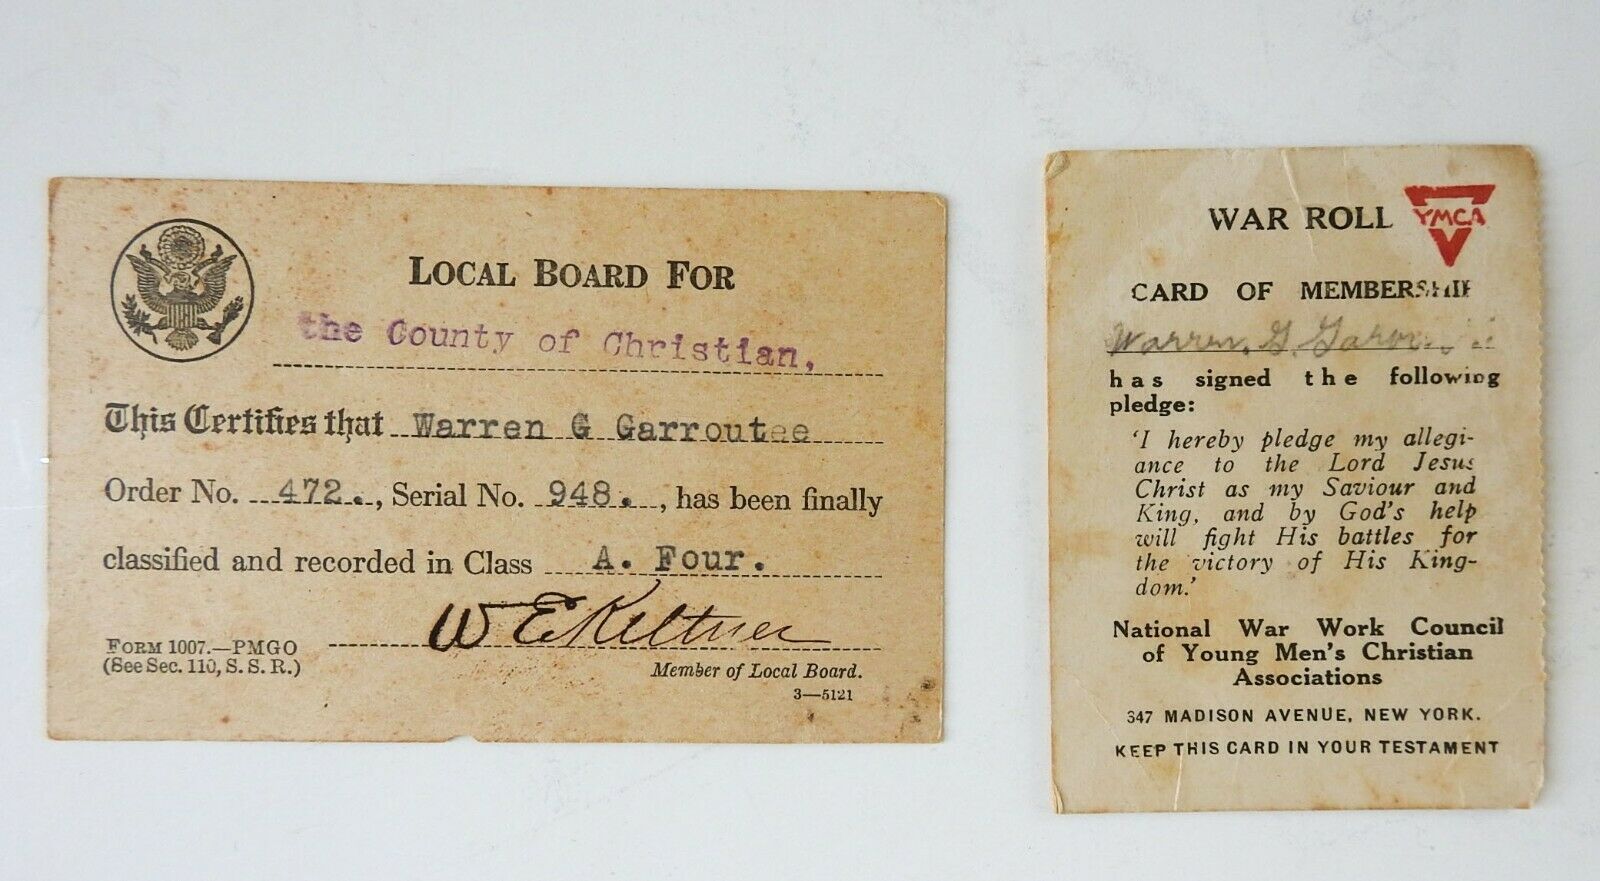 LOCAL BOARD FOR
the County of Christian,
This Certifies that Warren G Garroutee
Order No. 472., Serial No. 948., has been finally
classified and recorded in Class A. Four.
W E Keltner
FORM 1007.—PMGO
(See Sec. 110, S. S. R.)
Member of Local Board.
3—5121
WAR ROLL YMCA
CARD OF MEMBERSHIP
Warren. G.
has signed the following
pledge:
'I hereby pledge my allegi-
ance to the Lord Jesus
Christ as my Saviour and
King, and by God's help
will fight His battles for
the victory of His King-
dom.'
National War Work Council
of Young Men's Christian
Associations
347 MADISON AVENUE, NEW YORK.
KEEP THIS CARD IN YOUR TESTAMENT